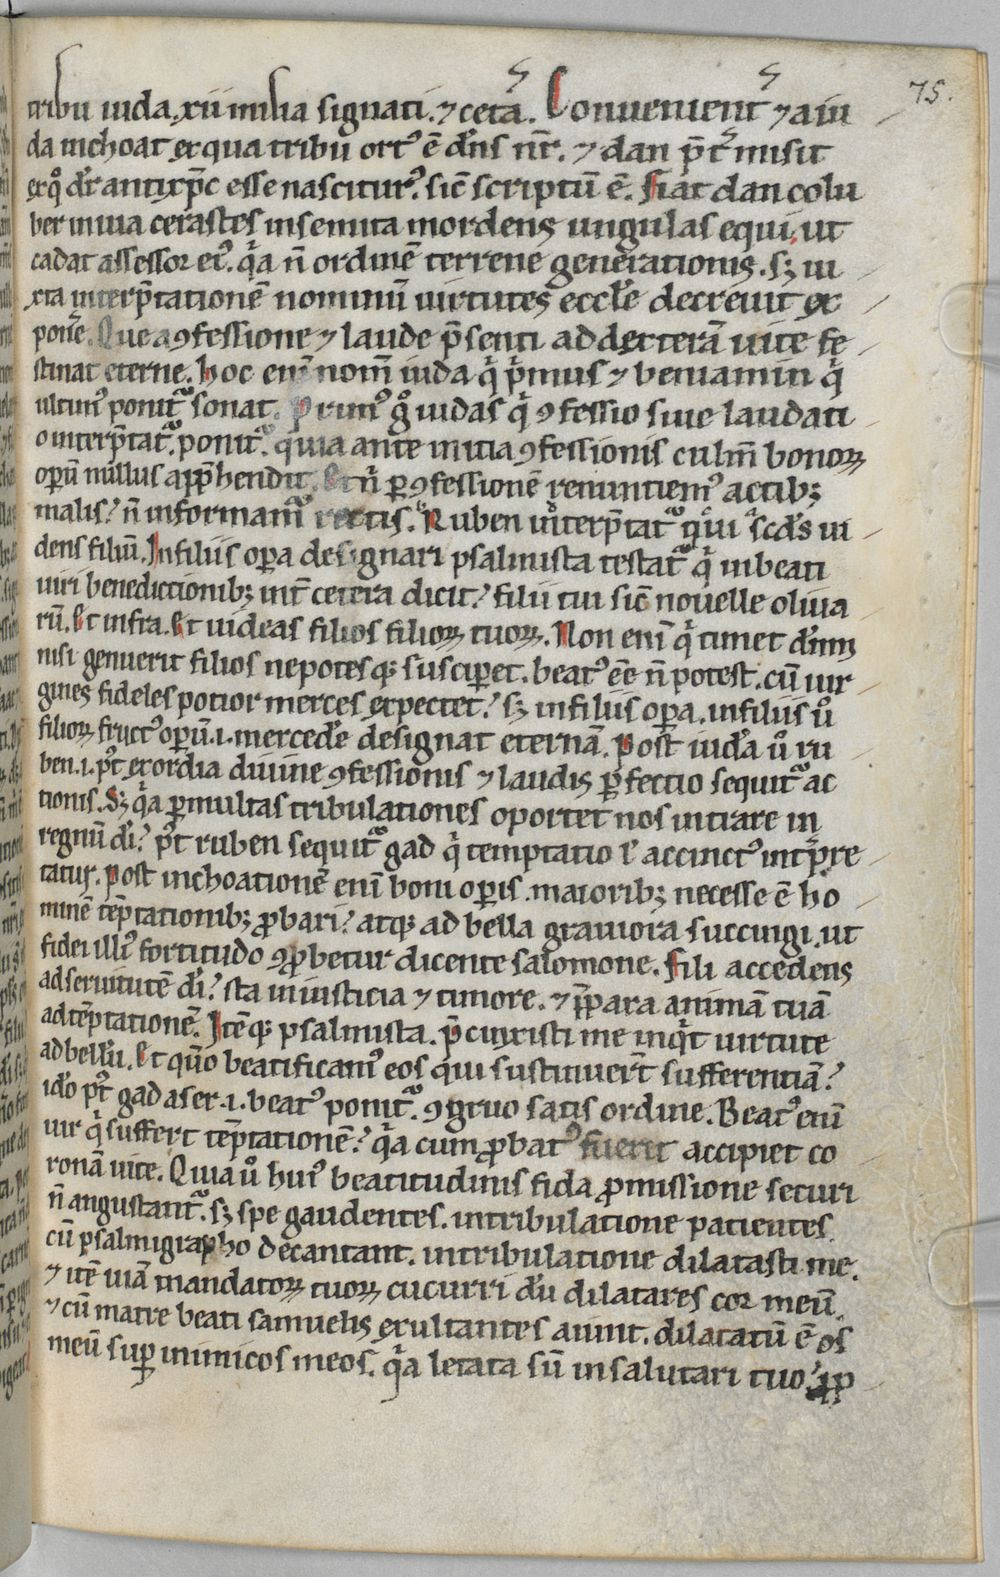 75.
tribu iuda .xii milia signati. ⁊ cetā. Conuenient̄ ⁊ a iu
da inchoat ex qua tribu ort᷒ ē dn̄s nr̄. ⁊ dan p̄tmisit
ex qͦ dr̄ antixp̄c esse nascitur᷒. sic̄ scriptū ē. Fiat dan colu
ber in uia cerastes in semita mordens ungulas equi. ut
cadat assessor ei᷒. qͣa n̄ ordinē terrene generationis. sꝫ iu
xta int̄p̄tationē nominū uirtutes eccl̄e decreuit ex
pone᷒. Que a ꝯfessione ⁊ laude p̄senti ad dexterā uite fe
stinat eterne. hoc eni᷒ nom̄ iuda qͥ pͥmus ⁊ beniamin qͥ
ultim᷒ ponit᷑ sonat. Prim᷒ gͦ iudas qͥ ꝯfessio siue laudati
o int̄p̄tat᷑. ponit᷑. quia ante initia ꝯfessionis culm̄ bonoꝝ
opū nullus app̄hendit. Et nͥ ꝑ ꝯfessionē renuntiem᷒ actibꝫ
malis? n̄ informam᷑ rectis. Ruben int̄p̄tat᷑ qͥ ui
dens filiū. In filiis oꝑa designari psalmista testat᷑ qͥ in beati
uiri benedictionibꝫ int̄ cetera dicit? filii tui sic̄ nouelle oliua
rū. Et infra. Et uideas filios filioꝝ tuoꝝ. Non eni᷒ qͥ timet dn̄m
nisi genuerit filios nepotesqꝫ susciꝑet. beat᷒ ēe n̄ potest. cū uir
gines fideles potior merces expectet? sꝫ in filiis oꝑa. in filiis uͦ
filioꝝ fruct᷒ opū .i. mercedē designat eternā. Post iudā uͦ ru
ben .i. pͦt exordia diuine ꝯfessionis ⁊ laudis ꝑfectio sequit᷑ ac
tionis. Sꝫ qͣa ꝑ multas tribulationes oportet nos intrare in
regnū di᷒? pͦt ruben sequit᷑ gad qͥ temptatio ł accinct᷒ int̄pre
tatur. Post inchoationē eni᷒ boni oꝑis. maioribꝫ necesse ē ho
minē tēptationibꝫ ꝓbari? atqꝫ ad bella grauiora succingi. ut
fidei illi᷒ fortitudo ꝯꝓbetur dicente salomone. Fili accedens
ad seruitutē di᷒? sta in iusticia ⁊ timore. ⁊ p̄para animā tuā
ad tēptationē. Itēqꝫ psalmista. p̄cinxisti me inqͥt uirtute
ad bellū. Et qm̄ beatificam᷒ eos qui sustinuer̄t sufferentiā?
ido᷒ pͦt gad aser .i. beat᷒ ponit᷑. ꝯgruo satis ordine. Beat᷒ eni᷒
uir qͥ suffert tēptationē? qͣa cum ꝓbat᷒ fuerit accipiet co
ronā uite. Quia uͦ hui᷒ beatitudinis fida ꝓmissione securi
n̄ angustant᷑. sꝫ spe gaudentes. in tribulatione patientes.
cū psalmigrapho decantant. in tribulatione dilatasti me.
⁊ itē uiā mandatoꝝ tuoꝝ cucurri dū dilatares cor meū.
⁊ cū matre beati samuelis exultantes aiunt. dilatatū ē os
meū suꝑ inimicos meos. qͣa letata sū in salutari tuo?